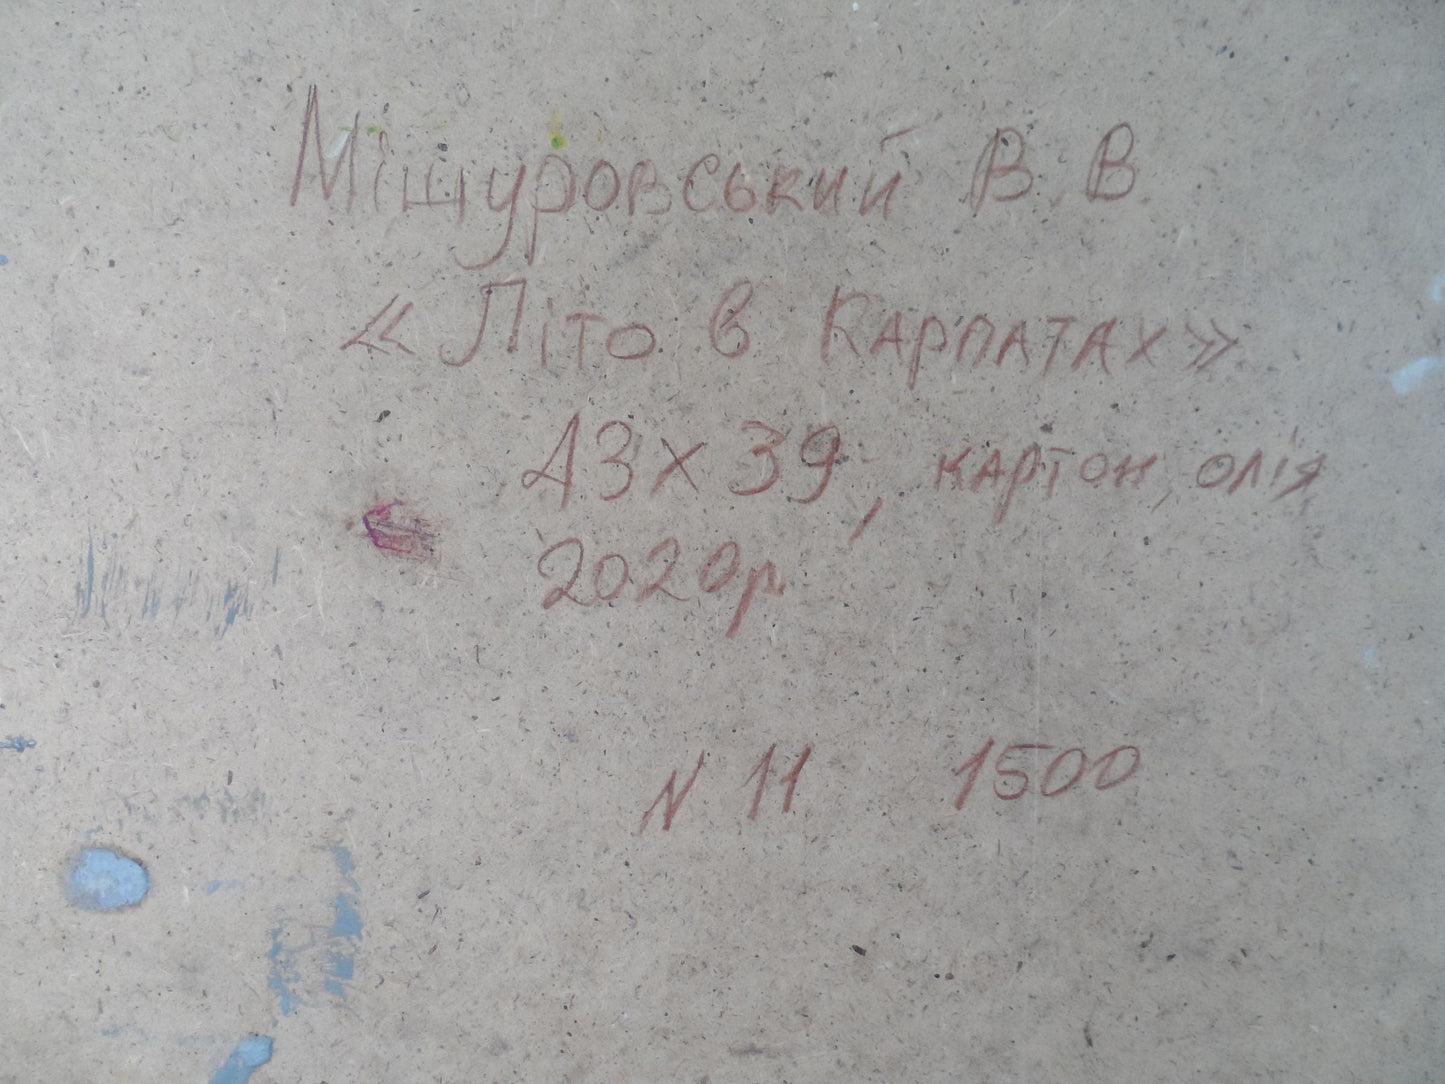 Міщуровський В.В.
«Літо в Карпатах»
43х39, картон, олія
2020р
N 11 1500